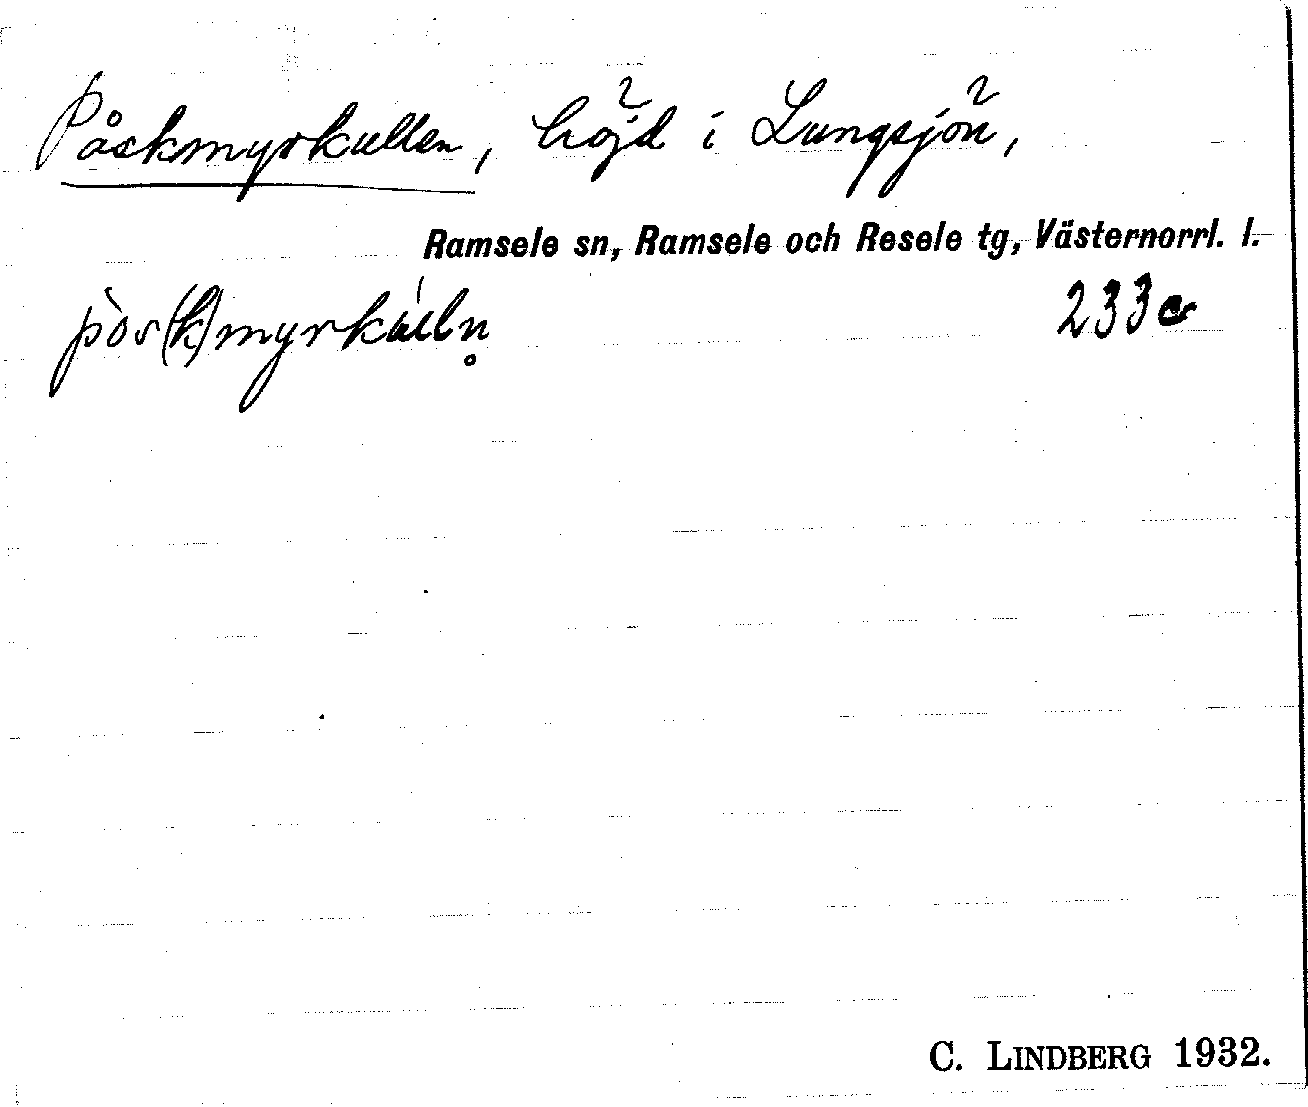 Påskmyrkullen, höjd i Lungsjön,
Ramsele sn, Ramsele och Resele tg, Västernorrl. l.
pòs(k)myrkúln̥ 233 c
C. LINDBERG 1932.